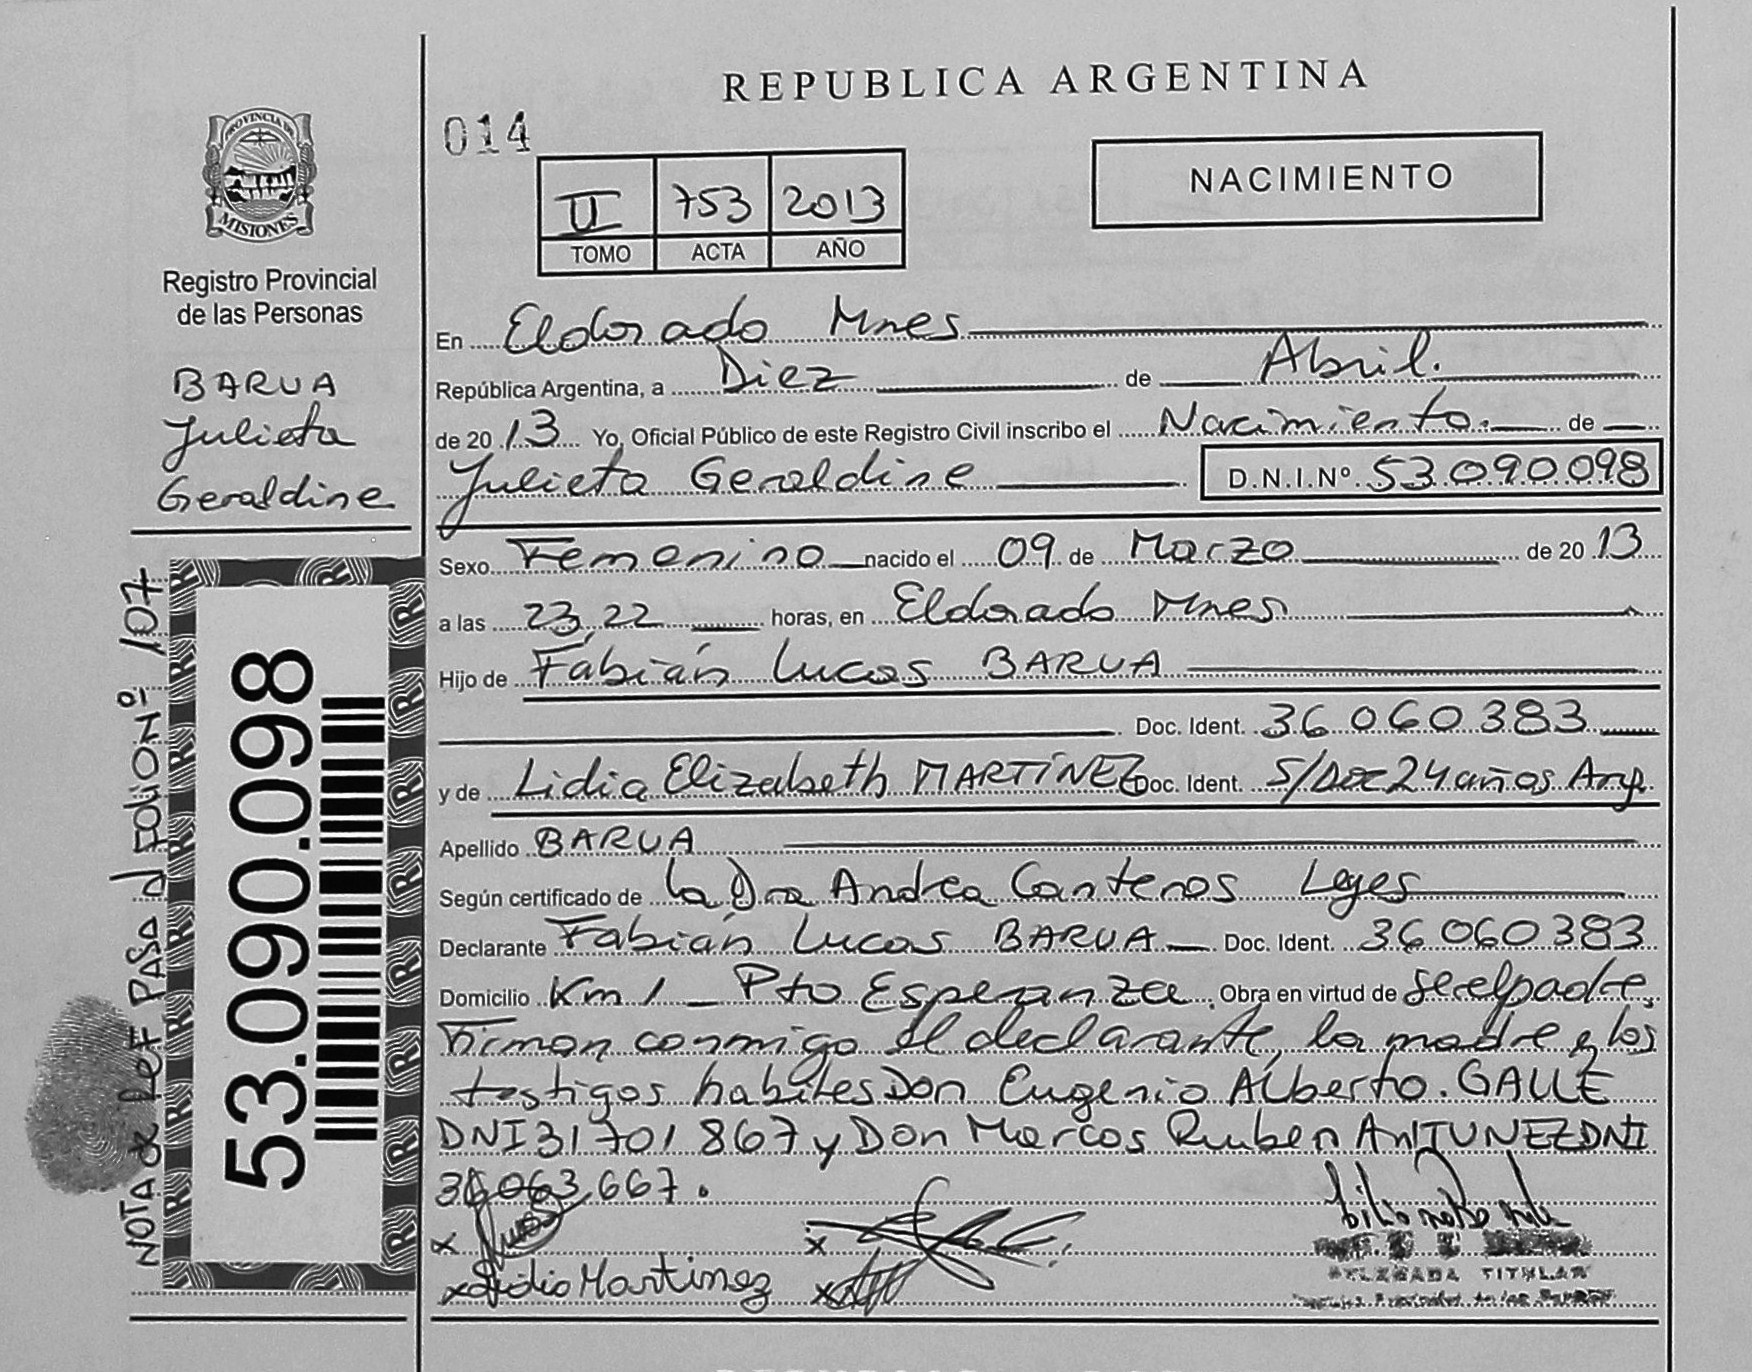 REPUBLICA ARGENTINA
014
NACIMIENTO
II 753 2013
TOMO ACTA AÑO
PROVINCIA DE
MISIONES
Registro Provincial
de las Personas
BARUA
Julieta
Geraldine
En Eldorado Mnes
República Argentina, a Diez de Abril.
de 2013 Yo, Oficial Público de este Registro Civil inscribo el Nacimiento. de
Julieta Geraldine D.N.I.Nº 53.090.098
Sexo Femenino nacido el 09 de Marzo de 2013
a las 23,22 horas, en Eldorado Mnes
Hijo de Fabián Lucas BARUA
Doc. Ident. 36.060.383
y de Lidia Elizabeth MARTÍNEZ Doc. Ident. S/Doc 24 años Arg.
Apellido BARUA
Según certificado de la Dra Andrea Canteros Leyes
Declarante Fabián Lucas BARUA Doc. Ident. 36 060 383
Domicilio Km 1 _ Pto Esperanza Obra en virtud de ser el padre,
Firman conmigo el declarante, la madre y los
testigos habiles Don Eugenio Alberto. GALLE
DNI 31 701 867 y Don Marcos Ruben ANTUNEZ DNI
063,667.
x x
x Lidia Martinez x
DELEGADA TITULAR
NOTA de Ref PASA al FOLIO Nº 107
53.090.098